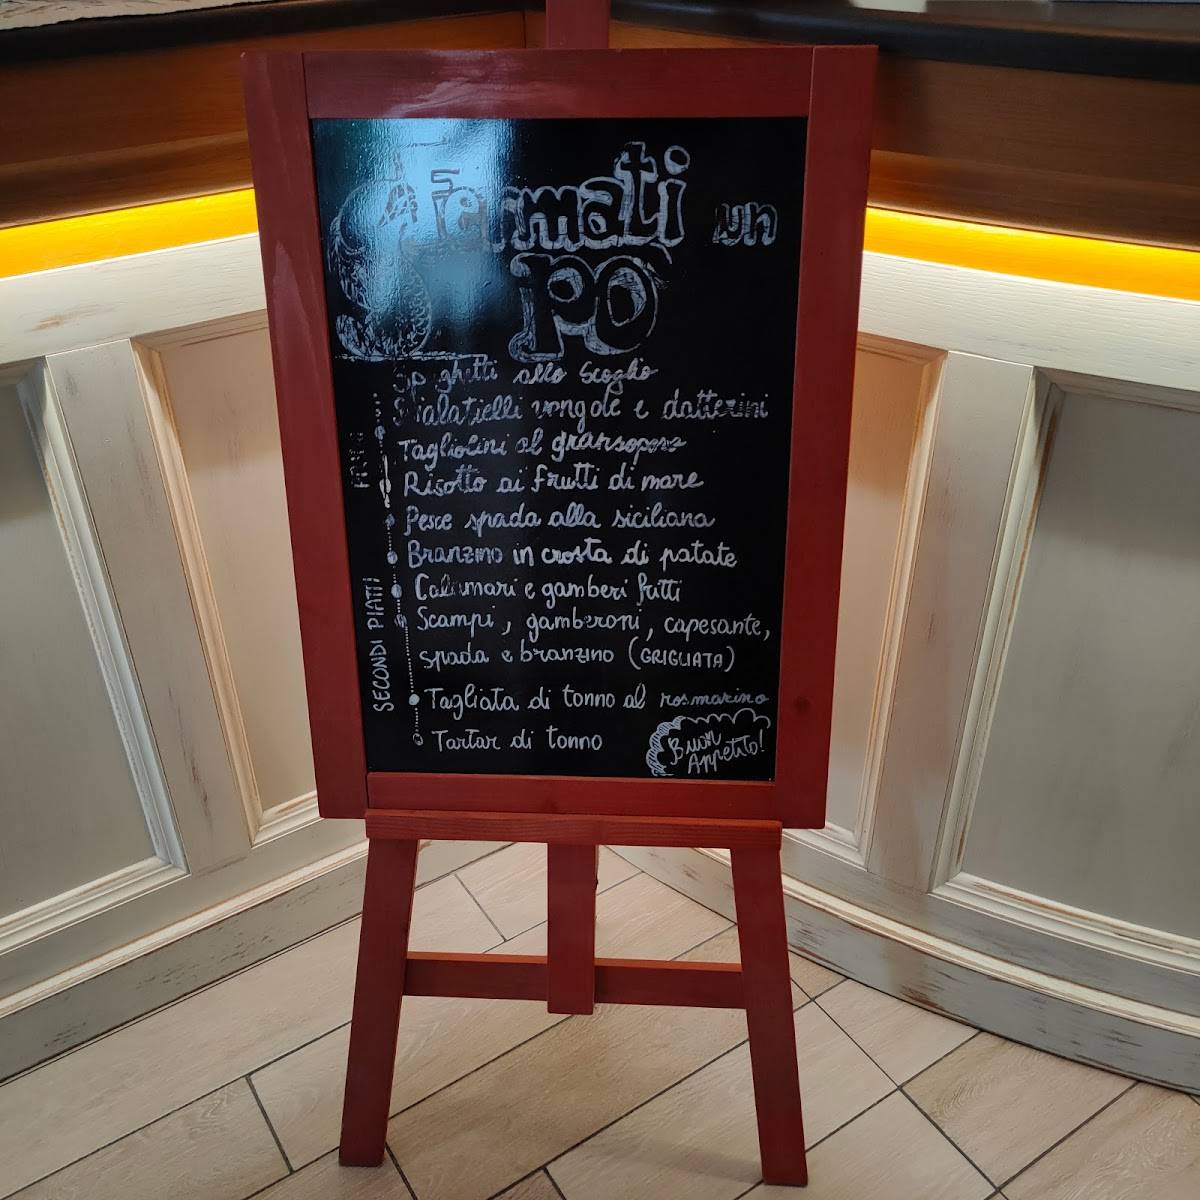 Fermati un
pò
Spaghetti allo scoglio
Scialatielli vongole e datterini
Tagliolini al gransoporo
Risotto ai frutti di mare
SECONDI PIATTI
Pesce spada alla siciliana
Branzino in crosta di patate
Calamari e gamberi fritti
Scampi, gamberoni, capesante,
spada e branzino (GRIGLIATA)
Tagliata di tonno al rosmarino
Tartar di tonno
Buon
Appetito!